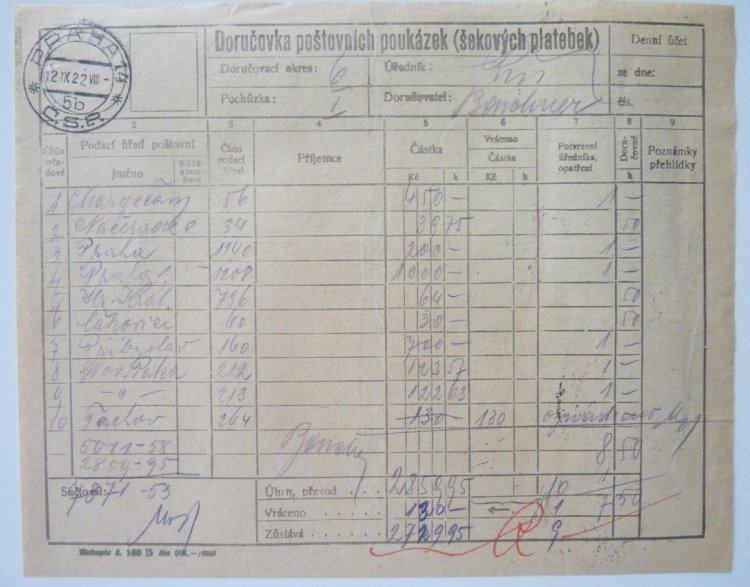 PRAHA 14
12 IX. 22 VIII -
5b
* Č.S.R. *
Doručovka poštovních poukázek (šekových platebek)
Denní účet
Doručovací okres: 6 Úředník:
ze dne:
Pochůzka: 1 Doručovatel:
čís.
2 3 4 5 6 7 8 9
Číslo pořadové
Podací úřad poštovní
jméno
Číslo podací
Příjemce
Částka
Kč h
Vráceno
Částka
Kč h
Potvrzení úředníka, opatření
Doručovné
Poznámky přehlídky
1 56 450 - 1 -
2 34 38 75 50
3 Praha 1940 200 - 1 -
4 Praha 1208 1000 - 1 -
5 Hr. Král. 796 64 - 50
6 60 30 - 50
7 Přibyslav 160 700 - 1 -
8 Nov. Paka 212 123 57 1 -
9 - " - 213 122 63 1 -
10 Tachov 264 130 - 130
5011-58 8 50
2859-95 1
Súčtoval: 7871-53
Úhrn, převod . . . . 2859 95 10 7 50
Vráceno . . . . . 130 - 1
Zůstává . . . . . 2729 95 9